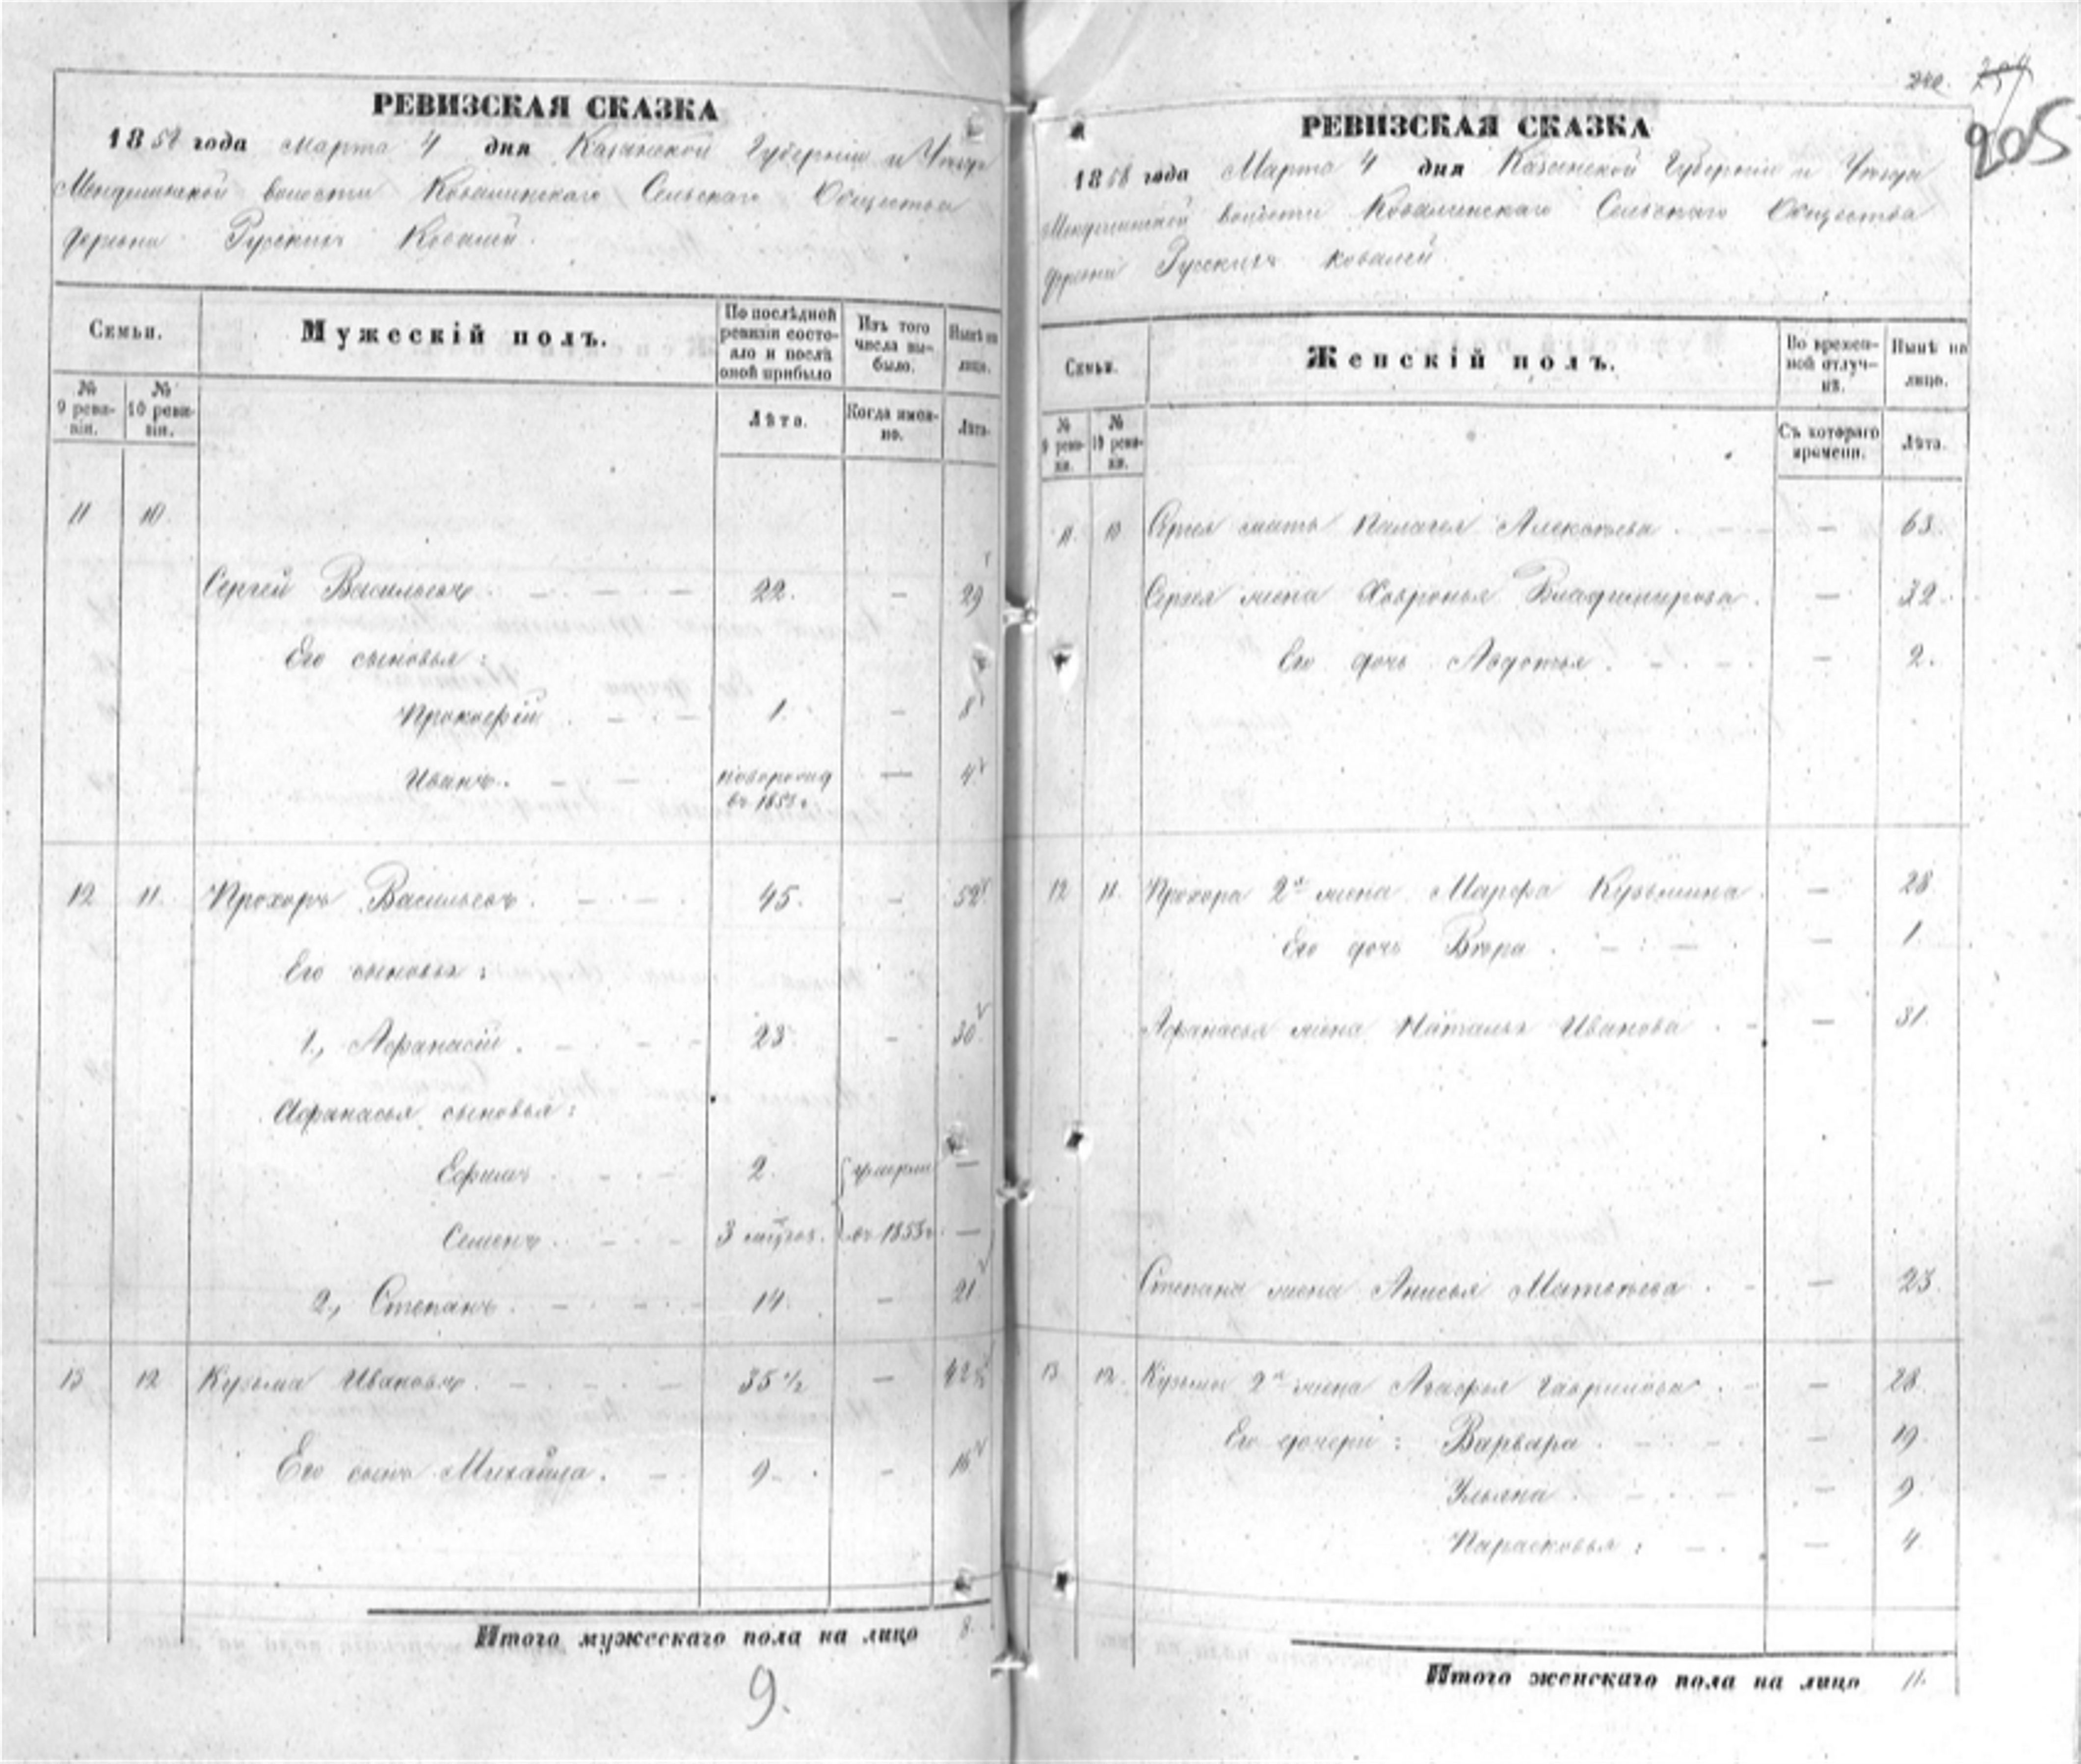 РЕВИЗСКАЯ СКАЗКА
1858 года марта 4 дня Казанской Губернiи и Уѣзда
волости Ковалинскаго Сельскаго Общества
деревни Русскихъ Ковалей.
Семьи.
Мужескiй полъ.
По послѣдней ревизiи состояло и послѣ оной прибыло
Изъ того числа выбыло.
Нынѣ на лицо.
№ 9 ревизiи.
№ 10 ревизiи.
Лѣта.
Когда именно.
Лѣта.
11 10.
Сергей Васильевъ. 22. — 29
Его сыновья:
Прокофiй 1. — 8
Иванъ. новорожд — 4
въ 185
12 11. Прохоръ Васильевъ. 45. — 52
Его сыновья:
1., Афанасiй. 23 — 30
Афанасья сыновья:
Ефимъ 2. умерли —
Семенъ. 3 въ 1853 г. —
2., Степанъ. 14. — 21
13 12 Кузьма Ивановъ. 35½ — 42½
Его сынъ Михайла. 9 — 16
Итого мужескаго пола на лицо 8.
9.
205
РЕВИЗСКАЯ СКАЗКА
1858 года Марта 4 дня Казанской Губернiи и Уѣзда
волости Ковалинскаго Сельскаго Общества
деревни Русскихъ ковалей.
Семьи.
Женскiй полъ.
Во временной отлучкѣ.
Нынѣ на лицо.
№ 9 ревизiи.
№ 10 ревизiи.
Съ котораго времени.
Лѣта.
11. 10 Сергея мать Палагея Алексѣева. — 63.
Сергея жена Хавронья Владимирова. — 32.
Его дочь Авдотья. — 2.
12 11. Прохора 2я жена Марфа Кузьмина — 28
Его дочь Вѣра. — 1.
Афанасья жена Наталья Иванова — 31.
Степана жена Анисья Матвѣева. — 23.
13 12. Кузьмы 2я жена Агафья Гаврилова. — 28.
Его дочери: Варвара. — 19.
Ульяна. — 9
Парасковья: — 4
Итого женскаго пола на лицо 11.